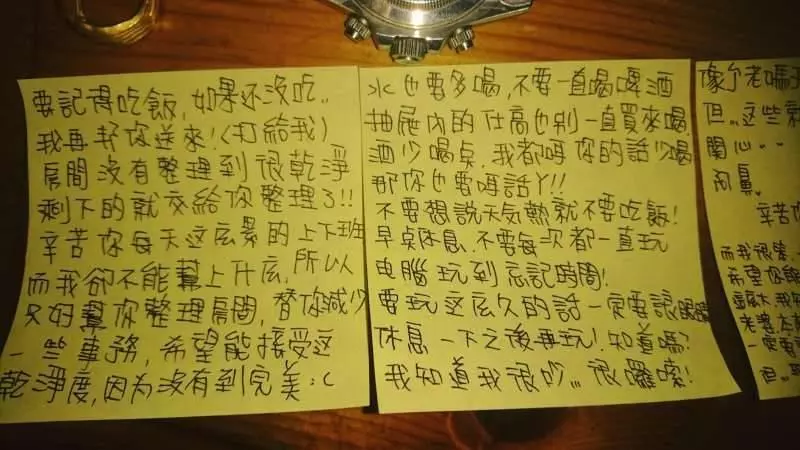 要記得吃飯,如果还沒吃..
我再帮你送來!(打給我)
房間沒有整理到很乾淨
剩下的就交給你整理了!!
辛苦你每天这么累的上下班
而我卻不能幫上什么,所以
只好幫你整理房間,替你減少
一些事務,希望能接受这
乾淨度,因为沒有到完美:(
水也要多喝,不要一直喝啤酒
抽屜內的仕高也別一直買來喝
酒少喝点,我都呀你的話少喝
那你也要呀話丫!!
不要想說天氣熱就不要吃飯!
早点休息,不要每次都一直玩
电腦玩到忘記時間!
要玩这么久的話一定要讓眼睛
休息一下之後再玩!知道嗎?
我知道我很吵...很囉嗦!
像个老嗎子
但..这些
關心..
辛苦你
而我很
希望你能
老婆
一定要
但..